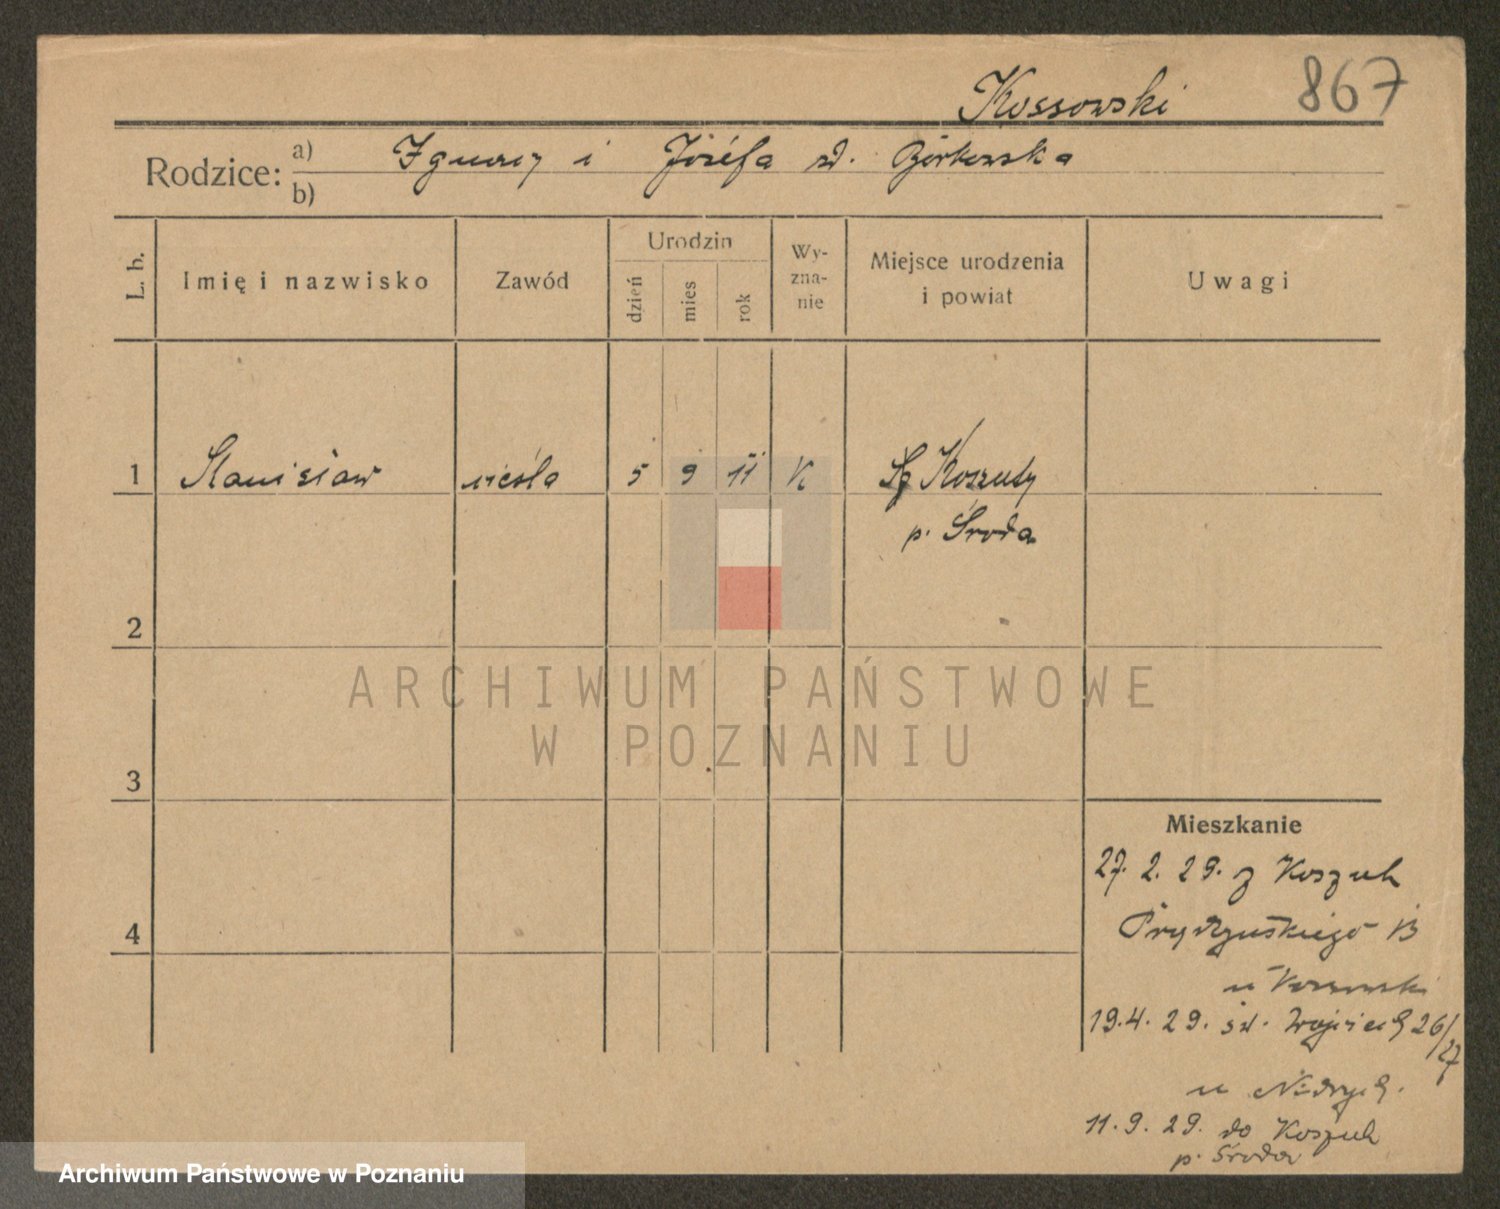 Kossowski 867
Rodzice: a) Ignacy i Józefa z d. Borkowska
b)
L. b. Imię i nazwisko Zawód Urodzin dzień mies rok Wy-zna-nie Miejsce urodzenia i powiat Uwagi
1 Stanisław cieśla 5 9 11 K Koszuty
p. Środa
2
3
4
Mieszkanie
27. 2. 29. z Koszut
Prądzyńskiego
u Kossowski
19. 4. 29. św. Wojciech 26/27
u
11. 9. 29. do Koszut
p. Środa
ARCHIWUM PAŃSTWOWE
W POZNANIU
Archiwum Państwowe w Poznaniu